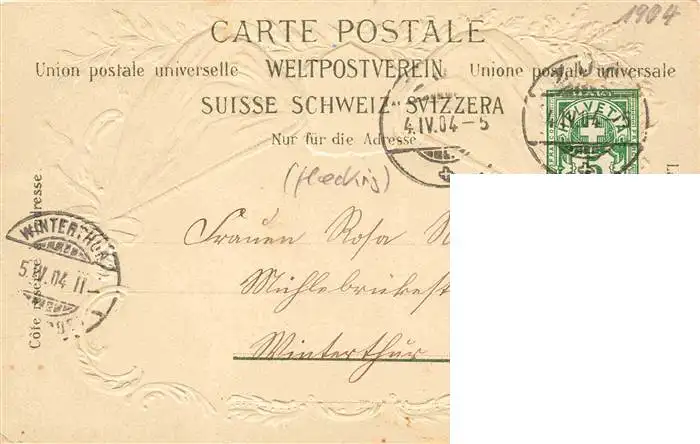 1904
CARTE POSTALE
Union postale universelle WELTPOSTVEREIN Unione postale universale
SUISSE SCHWEIZ SVIZZERA
Nur für die Adresse
4.IV.04-5
4.IV.04
HELVETIA
Frauen Rosa
Mühlebrükest
Winterthur
WINTERTHUR
5.IV.04.11-
Côté réservé adresse